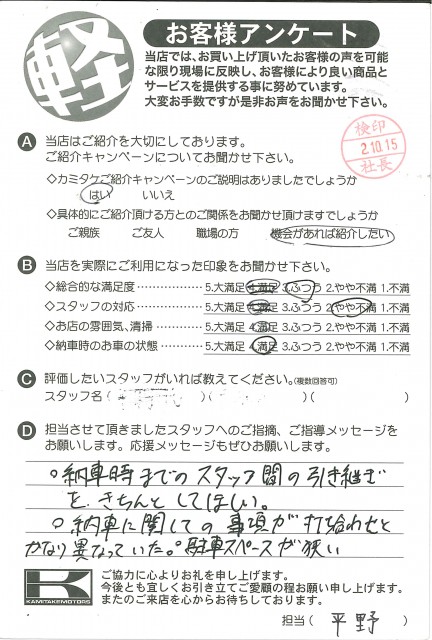 軽
お客様アンケート
当店では、お買い上げ頂いたお客様の声を可能
な限り現場に反映し、お客様により良い商品と
サービスを提供する事に努めています。
大変お手数ですが是非お声をお聞かせ下さい。
検印
2.10.15
社長
A 当店はご紹介を大切にしております。
ご紹介キャンペーンについてお聞かせ下さい。
◇カミタケご紹介キャンペーンのご説明はありましたでしょうか
はい いいえ
◇具体的にご紹介頂ける方とのご関係をお聞かせ頂けますでしょうか
ご親族 ご友人 職場の方 機会があれば紹介したい
B 当店を実際にご利用になった印象をお聞かせ下さい。
◇総合的な満足度 5.大満足 4.満足 3.ふつう 2.やや不満 1.不満
◇スタッフの対応 5.大満足 4.満足 3.ふつう 2.やや不満 1.不満
◇お店の雰囲気、清掃 5.大満足 4.満足 3.ふつう 2.やや不満 1.不満
◇納車時のお車の状態 5.大満足 4.満足 3.ふつう 2.やや不満 1.不満
C 評価したいスタッフがいれば教えてください。(複数回答可)
スタッフ名( )( )( )
D 担当させて頂きましたスタッフへのご指摘、ご指導メッセージを
お願いします。応援メッセージもぜひお願いします。
○納車時までのスタッフ間の引き継ぎ
を、きちんとしてほしい。
○納車に関しての事項が打ち合わせと
かなり異なっていた。○駐車スペースが狭い
K
KAMITAKE MOTORS
ご協力に心よりお礼を申し上げます。
今後とも宜しくお引き立てご愛顧の程お願い申し上げます。
またのご来店を心からお待ちしております。
担当( 平野 )